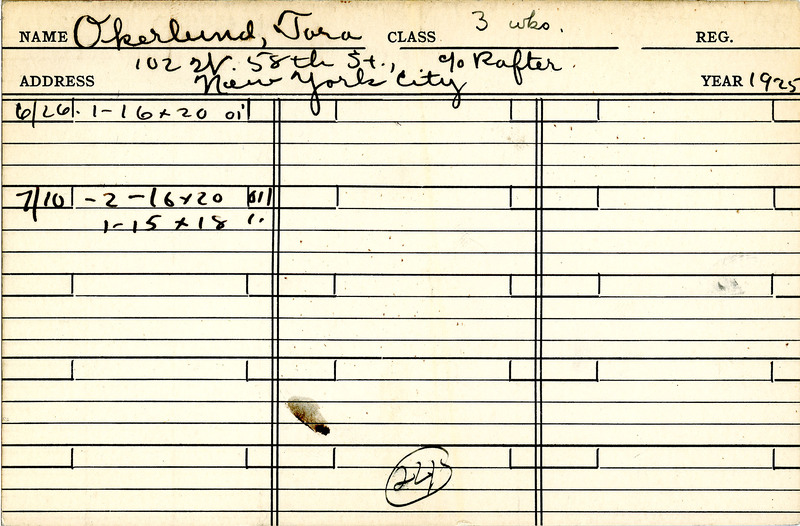 NAME Okerlund, Tora CLASS 3 wks. REG.
ADDRESS 102 W. 58th St., c/o Rafter
New York City YEAR 1925
6/26 1-16x20 oil
7/10 -2-16x20 oil
1-15x18 "